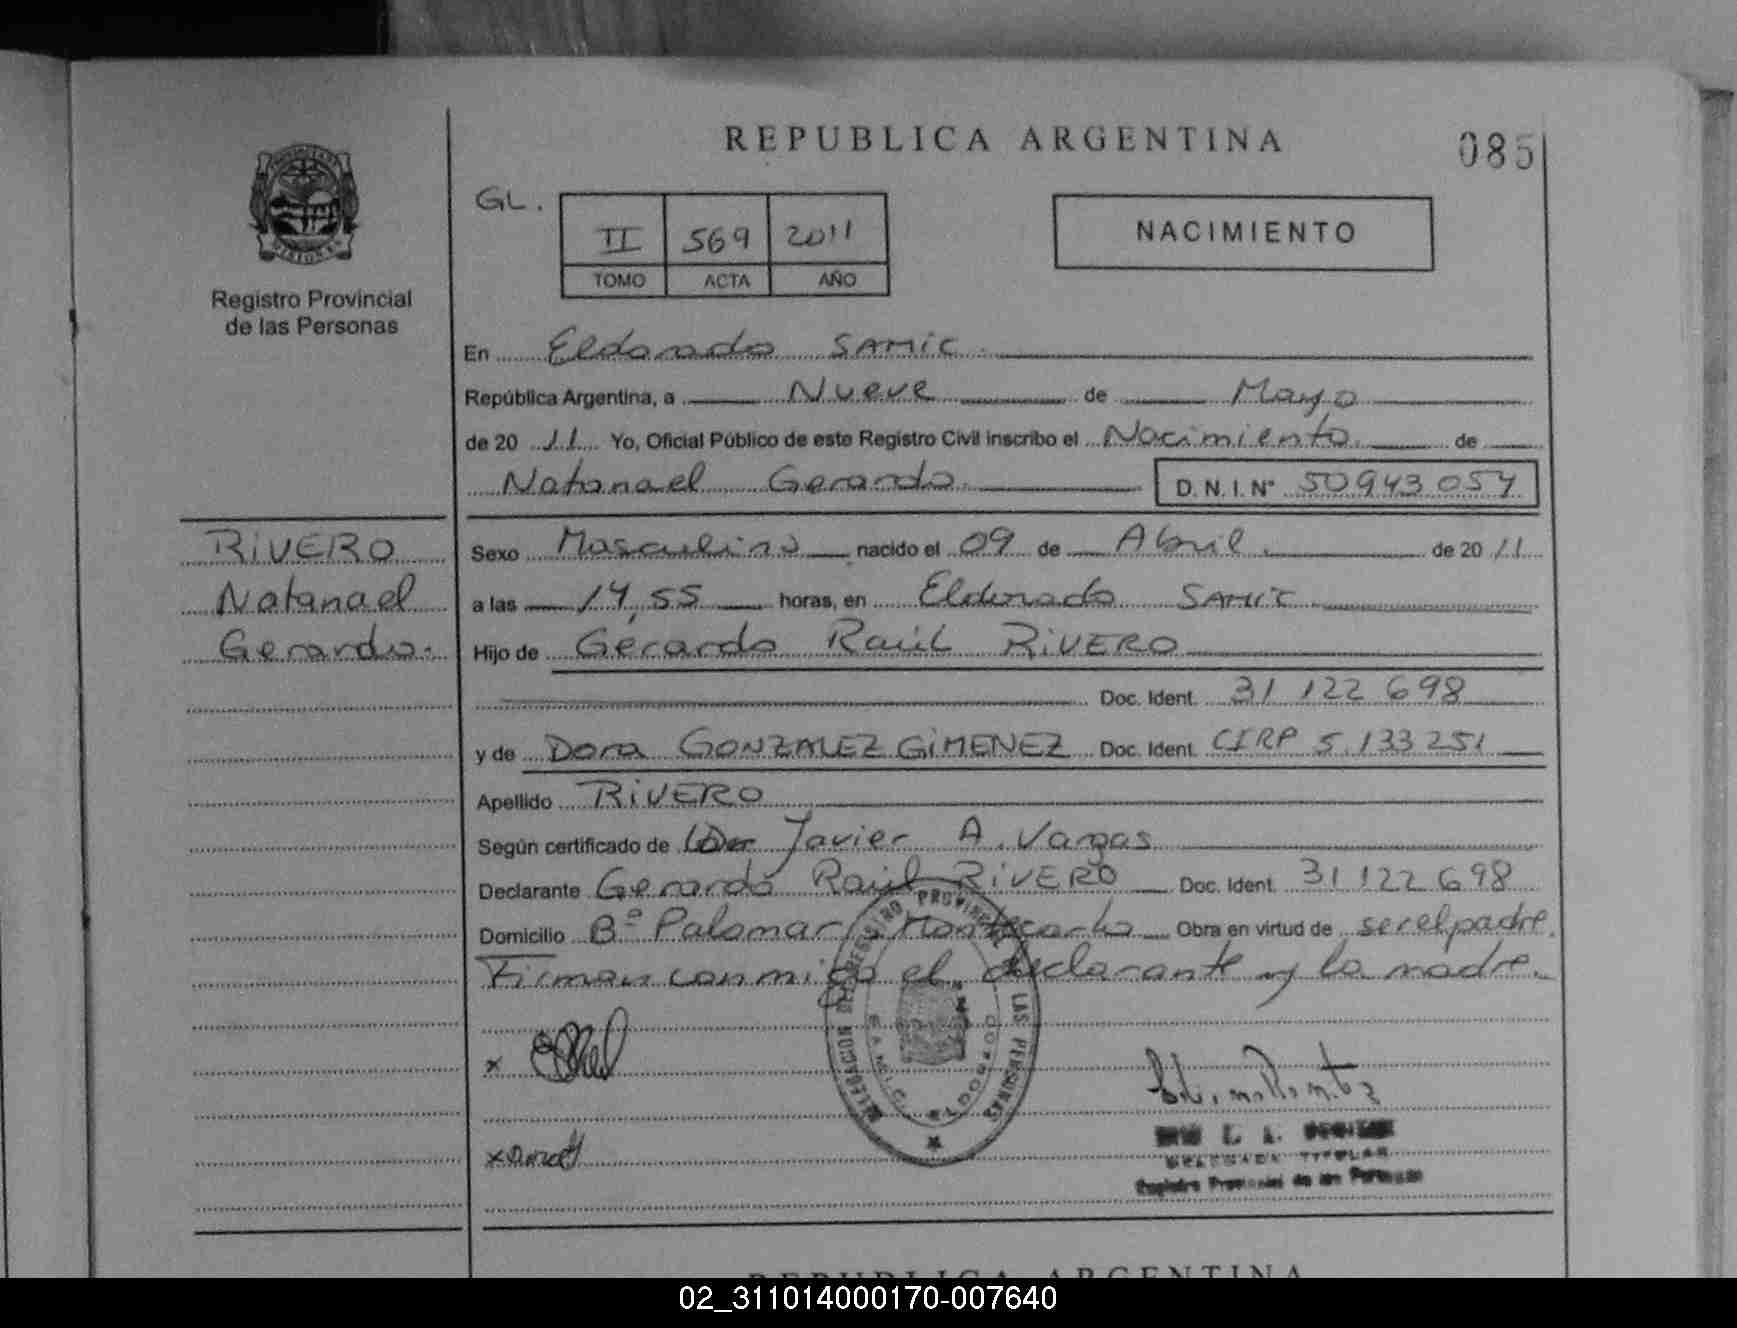 REPUBLICA ARGENTINA
085
GL.
II 569 2011
TOMO ACTA AÑO
NACIMIENTO
Registro Provincial
de las Personas
En Eldorado SAMIC.
República Argentina, a Nueve de Mayo
de 20 11 Yo, Oficial Público de este Registro Civil inscribo el Nacimiento de
Natanael Gerardo. D.N.I. N° 50943054
RIVERO
Natanael
Gerardo.
Sexo Masculino nacido el 09 de Abril de 20 11
a las 14,55 horas, en Eldorado SAMIC
Hijo de Gerardo Raúl RIVERO
Doc. Ident. 31 122 698
y de Dora GONZALEZ GIMENEZ Doc. Ident. CIRP 5.133 251
Apellido RIVERO
Según certificado de Javier A. Vargas
Declarante Gerardo Raúl RIVERO Doc. Ident. 31 122 698
Domicilio Bº Palomar, Montecarlo Obra en virtud de ser el padre.
Firman conmigo el declarante y la madre.
DELEGACION DEL REGISTRO PROVINCIAL LAS PERSONAS
SAMIC ELDORADO
x
x
DELEGADA TITULAR
Registro Provincial de las Personas
REPUBLICA ARGENTINA
02_311014000170-007640